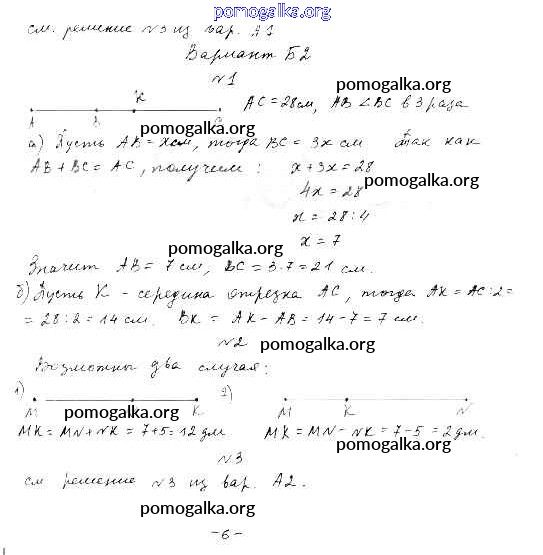 pomogalka.org
см. решение №3 из вар. А1
Вариант Б2
№1
K
pomogalka.org
AC = 28 см, AB < BC в 3 раза
A B C
pomogalka.org
а) Пусть AB = x см, тогда BC = 3x см Так как
AB + BC = AC, получаем: x + 3x = 28
pomogalka.org
4x = 28
x = 28 : 4
x = 7
pomogalka.org
Значит AB = 7 см, BC = 3·7 = 21 см.
б) Пусть K - середина отрезка AC, тогда AK = AC : 2 =
= 28 : 2 = 14 см. BK = AK - AB = 14 - 7 = 7 см.
№2
pomogalka.org
Возможны два случая:
1) 2)
M K M K N
pomogalka.org
MK = MN + NK = 7 + 5 = 12 дм MK = MN - NK = 7 - 5 = 2 дм.
pomogalka.org
№3
см решение №3 из вар. А2.
pomogalka.org
- 6 -
pomogalka.org